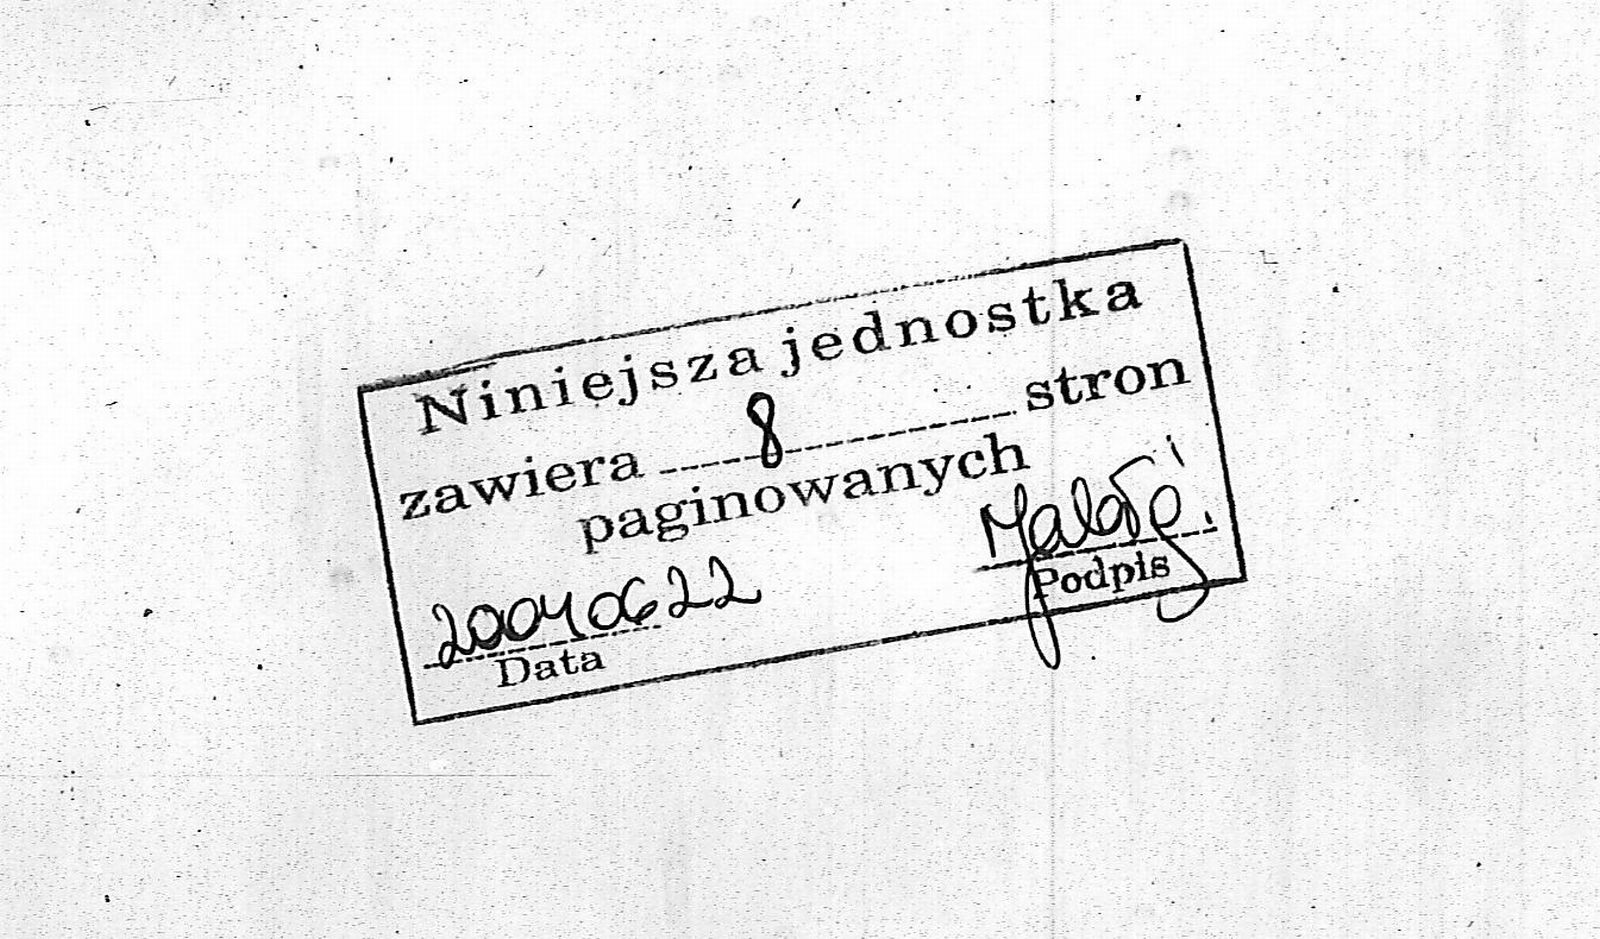 Niniejsza jednostka
zawiera 8 stron
paginowanych
20040622
Data
Podpis